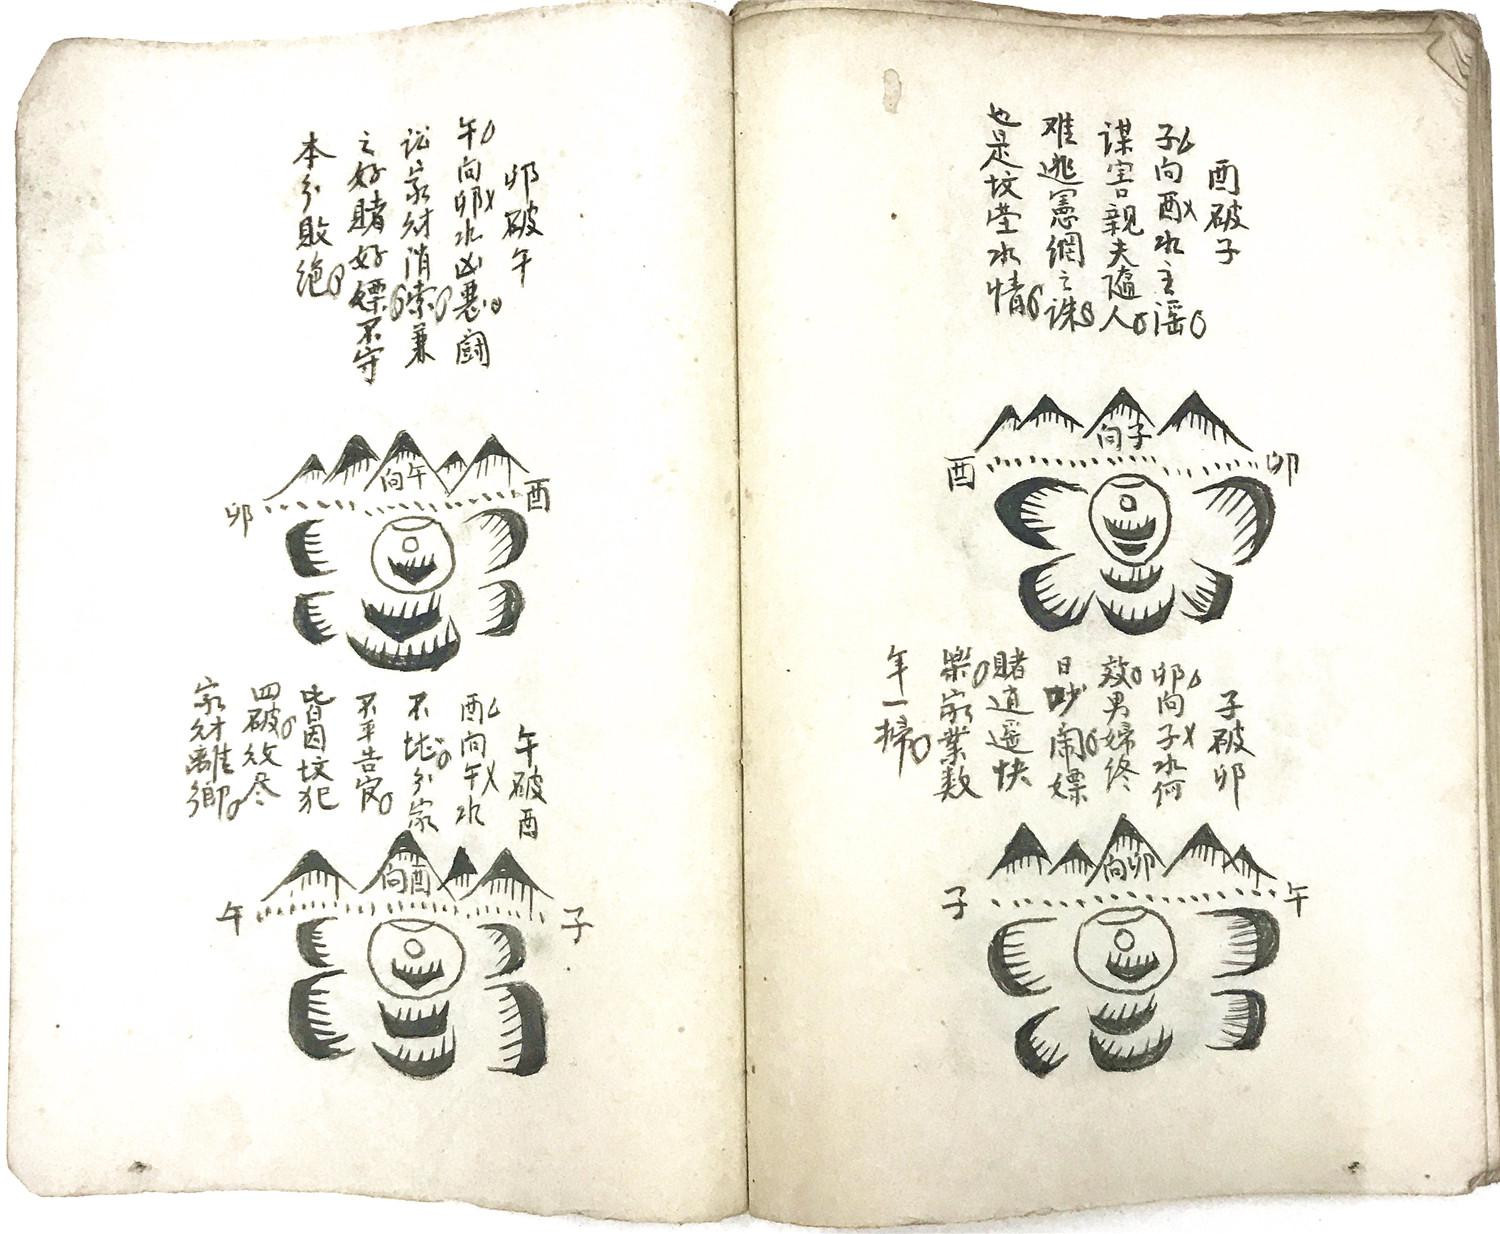 酉破子
子向酉水主淫
謀害親夫隨人
难逃憲網之誅
也是坟塋水情
向子
酉
卯
子破卯
卯向子水何
效男婦终
日吵鬧嫖
賭逍遥快
樂家業敗
年一掃
向卯
子
午
卯破午
午向卯水凶惡鬪
訟家财消索兼
之好賭好嫖不守
本分敗絶
向午
卯
酉
午破酉
酉向午水
不堪分家
不平告官
皆因坟犯
四破敗尽
家财離鄉
向酉
午
子